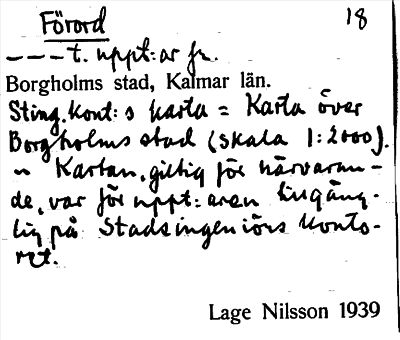 Förord 18
– – – t. uppt:ar fr.
Borgholms stad, Kalmar län.
Sting.kont:s karta = Karta över
Borgholms stad (skala 1:2000).
" Kartan, giltig för närvaran-
de, var för uppt:aren tillgäng-
lig på Stadsingeniörs konto-
ret.
Lage Nilsson 1939